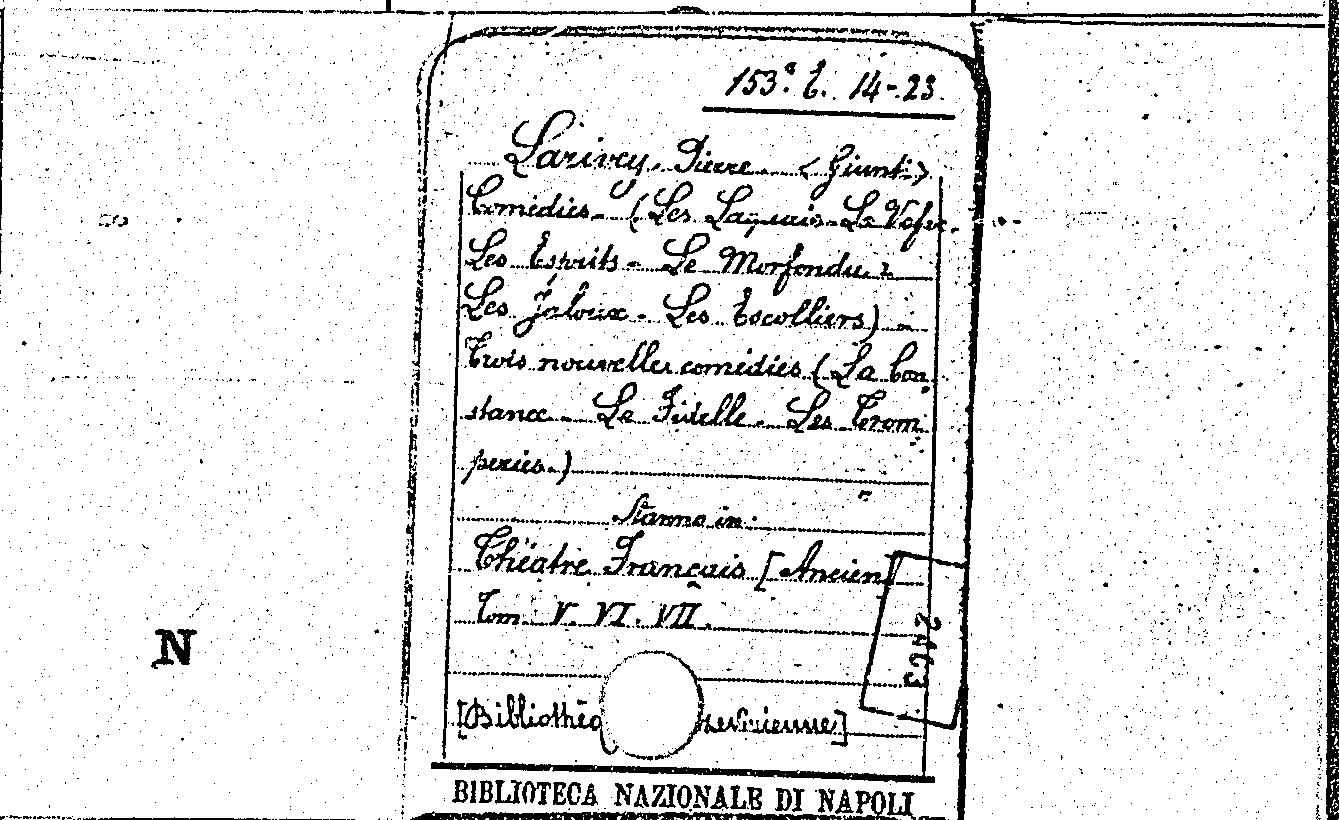 153.ª E. 14-23.
Larivey, Pierre. <Giunti>
Comédies- (Les Laquais- La Vefve.
Les Esprits- Le Morfondu-
Les Jaloux- Les Escolliers) -
Trois nouvelles comédies (La Con
stance- Le Fidelle- Les Trom
peries-)
Stanno in:
Théatre Français [Ancien]
Tom. V. VI. VII.
2463
[Biblioth
N
BIBLIOTECA NAZIONALE DI NAPOLI